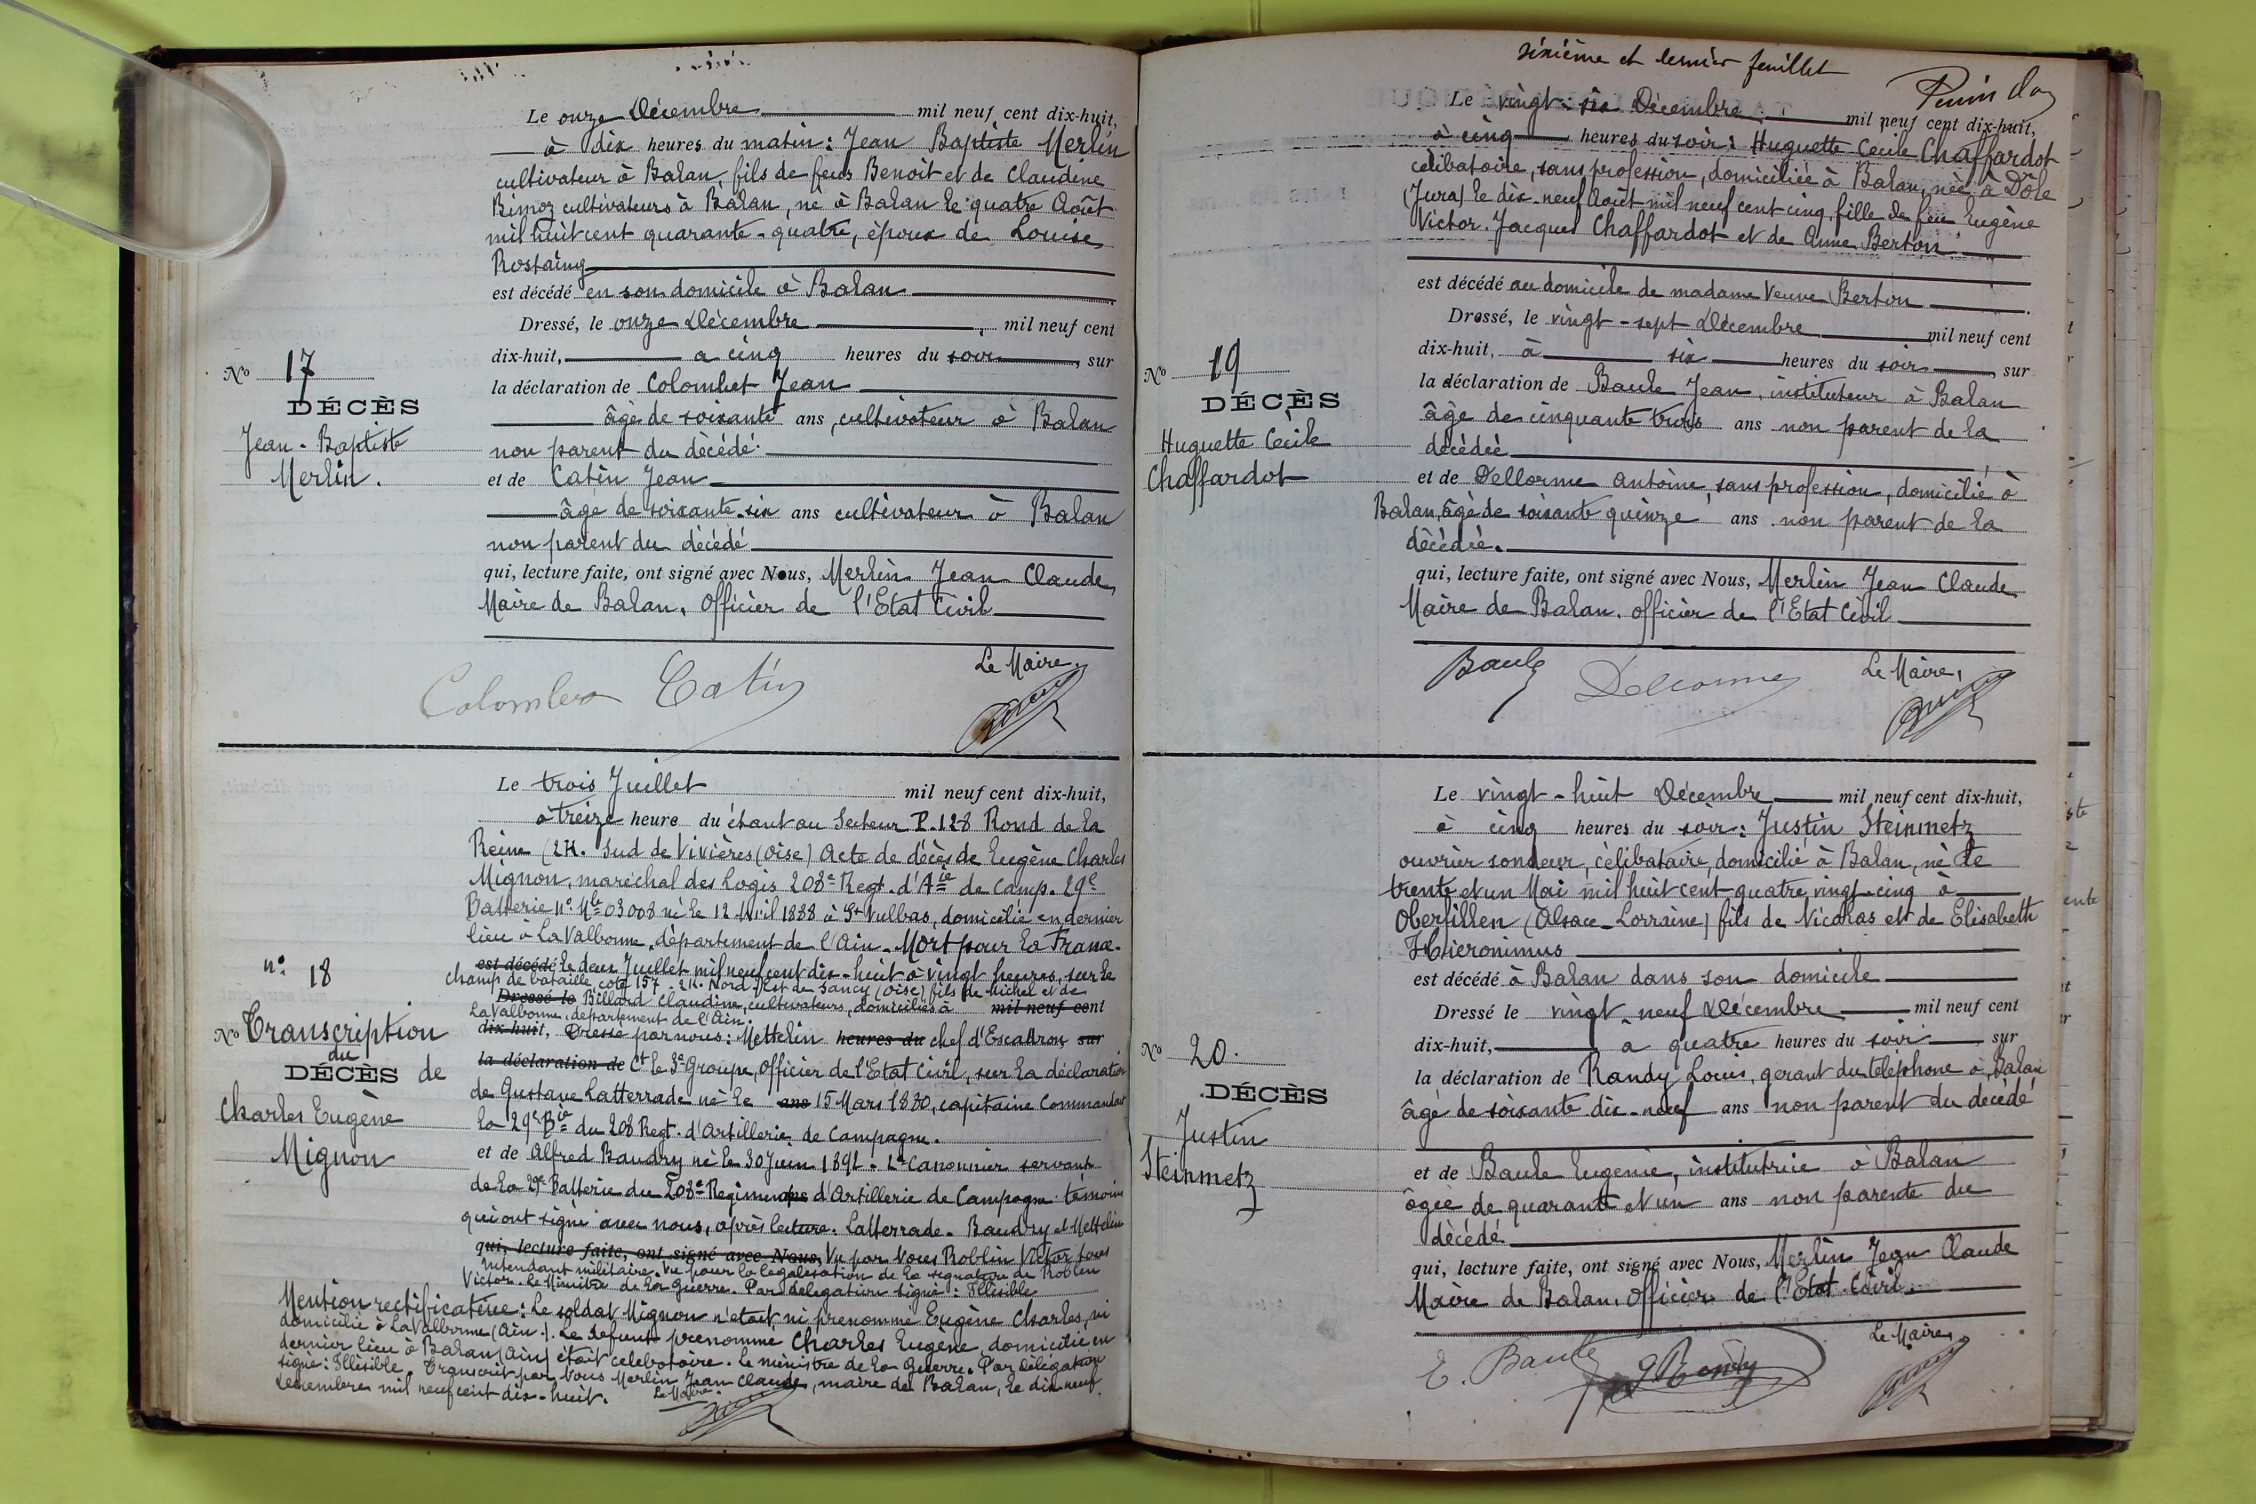 Le onze Décembre mil neuf cent dix-huit,
à dix heures du matin : Jean Baptiste Merlin
cultivateur à Balan, fils de feus Benoit et de Claudine
Bimoz cultivateurs à Balan, né à Balan le quatre Août
mil huit cent quarante-quatre, époux de Louise
Rostaing
est décédé en son domicile à Balan
Dressé, le onze Décembre, mil neuf cent
dix-huit, a cinq heures du soir, sur
la déclaration de Colombet Jean
âgé de soixante ans, cultivateur à Balan
non parent du décédé
et de Catin Jean
âgé de soixante-six ans cultivateur à Balan
non parent du décédé
qui, lecture faite, ont signé avec Nous, Merlin Jean Claude,
Maire de Balan, Officier de l'Etat Civil
Le Maire,
Colombet Catin
No 17
DÉCÈS
Jean-Baptiste
Merlin.
Le trois Juillet mil neuf cent dix-huit,
à treize heure du étant au Secteur P.128 Rond de la
Reine (2K. Sud de Vivières (Oise) Acte de décès de Eugène Charles
Mignon, maréchal des Logis 208e Regt. d'Aie de Camp. 29e
Batterie No. Mle 03008 né le 12 Avril 1888 à St Vulbas, domicilié en dernier
lieu à La Valbonne, département de l'Ain. Mort pour la France.
est décédé le deux Juillet mil neuf cent dix-huit à vingt heures, sur le
champ de bataille cote 157. 2K. Nord-Est de Sancy (Oise) fils de Michel et de
Dressé le Billard Claudine, cultivateurs, domiciliés à mil neuf cent
La Valbonne, département de l'Ain.
dix-huit, Dressé par nous : Mettelin heures du chef d'Escadron sur
la déclaration de Ct le 3e Groupe, Officier de l'Etat Civil, sur la déclaration
de Gustave Latterrade né le ans 15 Mars 1880, capitaine Commandant
la 29e Bie du 208 Regt. d'Artillerie de Campagne.
et de Alfred Baudry né le 30 Juin 1891. 2e Canonnier servant
de la 29e Batterie du 208e Regiment ans d'Artillerie de Campagne. témoins
qui ont signé avec nous, après lecture. Latterrade. Baudry et Mettelin
qui, lecture faite, ont signé avec Nous, Vu par Nous Roblin Victor sous
intendant militaire. Vu pour la légalisation de la signature de Roblin
Victor. Le Ministre de la Guerre. Par délégation signé : Illisible
Mention rectificative : Le soldat Mignon n'était ni prénommé Eugène Charles, ni
domicilié à La Valbonne (Ain). Le défunt prénommé Charles Eugène, domicilié en
dernier lieu à Balan (Ain) était célibataire. Le ministre de la Guerre. Par délégation
signé : Illisible. Transcrit par Nous Merlin Jean Claude, maire de Balan, le dix-neuf
Décembre mil neuf cent dix-huit. Le Maire.
no 18
No Transcription
du
DÉCÈS de
Charles Eugène
Mignon
sixième et dernier feuillet
Le vingt-six Décembre mil neuf cent dix-huit,
à cinq heures du soir : Huguette Cecile Chaffardot
célibatoire, sans profession, domiciliée à Balan, née à Dôle
(Jura) le dix-neuf Août mil neuf cent cinq, fille de feu Eugène
Victor Jacques Chaffardot et de Anne Berton
est décédé au domicile de madame Veuve Berton
Dressé, le vingt-sept Décembre mil neuf cent
dix-huit, à six heures du soir, sur
la déclaration de Baule Jean, instituteur à Balan
âgé de cinquante trois ans non parent de la
décédée
et de Dellorme Antoine, sans profession, domicilié à
Balan, âgé de soixante quinze ans non parent de la
décédée.
qui, lecture faite, ont signé avec Nous, Merlin Jean Claude
Maire de Balan, Officier de l'Etat Civil
Baule Dellorme Le Maire,
No 19
DÉCÈS
Huguette Cécile
Chaffardot
Le vingt-huit Décembre mil neuf cent dix-huit,
à cinq heures du soir : Justin Steinmetz
ouvrier sondeur, célibataire, domicilié à Balan, né le
trente et un Mai mil huit cent quatre vingt-cinq à
Oberfillen (Alsace-Lorraine) fils de Nicolas et de Elisabeth
Hieronimus
est décédé à Balan dans son domicile
Dressé le vingt-neuf Décembre mil neuf cent
dix-huit, a quatre heures du soir sur
la déclaration de Randy Louis, gerant du téléphone à Balan
âgé de soixante dix-neuf ans non parent du décédé
et de Baule Eugenie, institutrice à Balan
âgée de quarante et un ans non parente du
décédé
qui, lecture faite, ont signé avec Nous, Merlin Jean Claude
Maire de Balan, Officier de l'Etat Civil.
Le Maire,
E. Baule
No 20.
DÉCÈS
Justin
Steinmetz